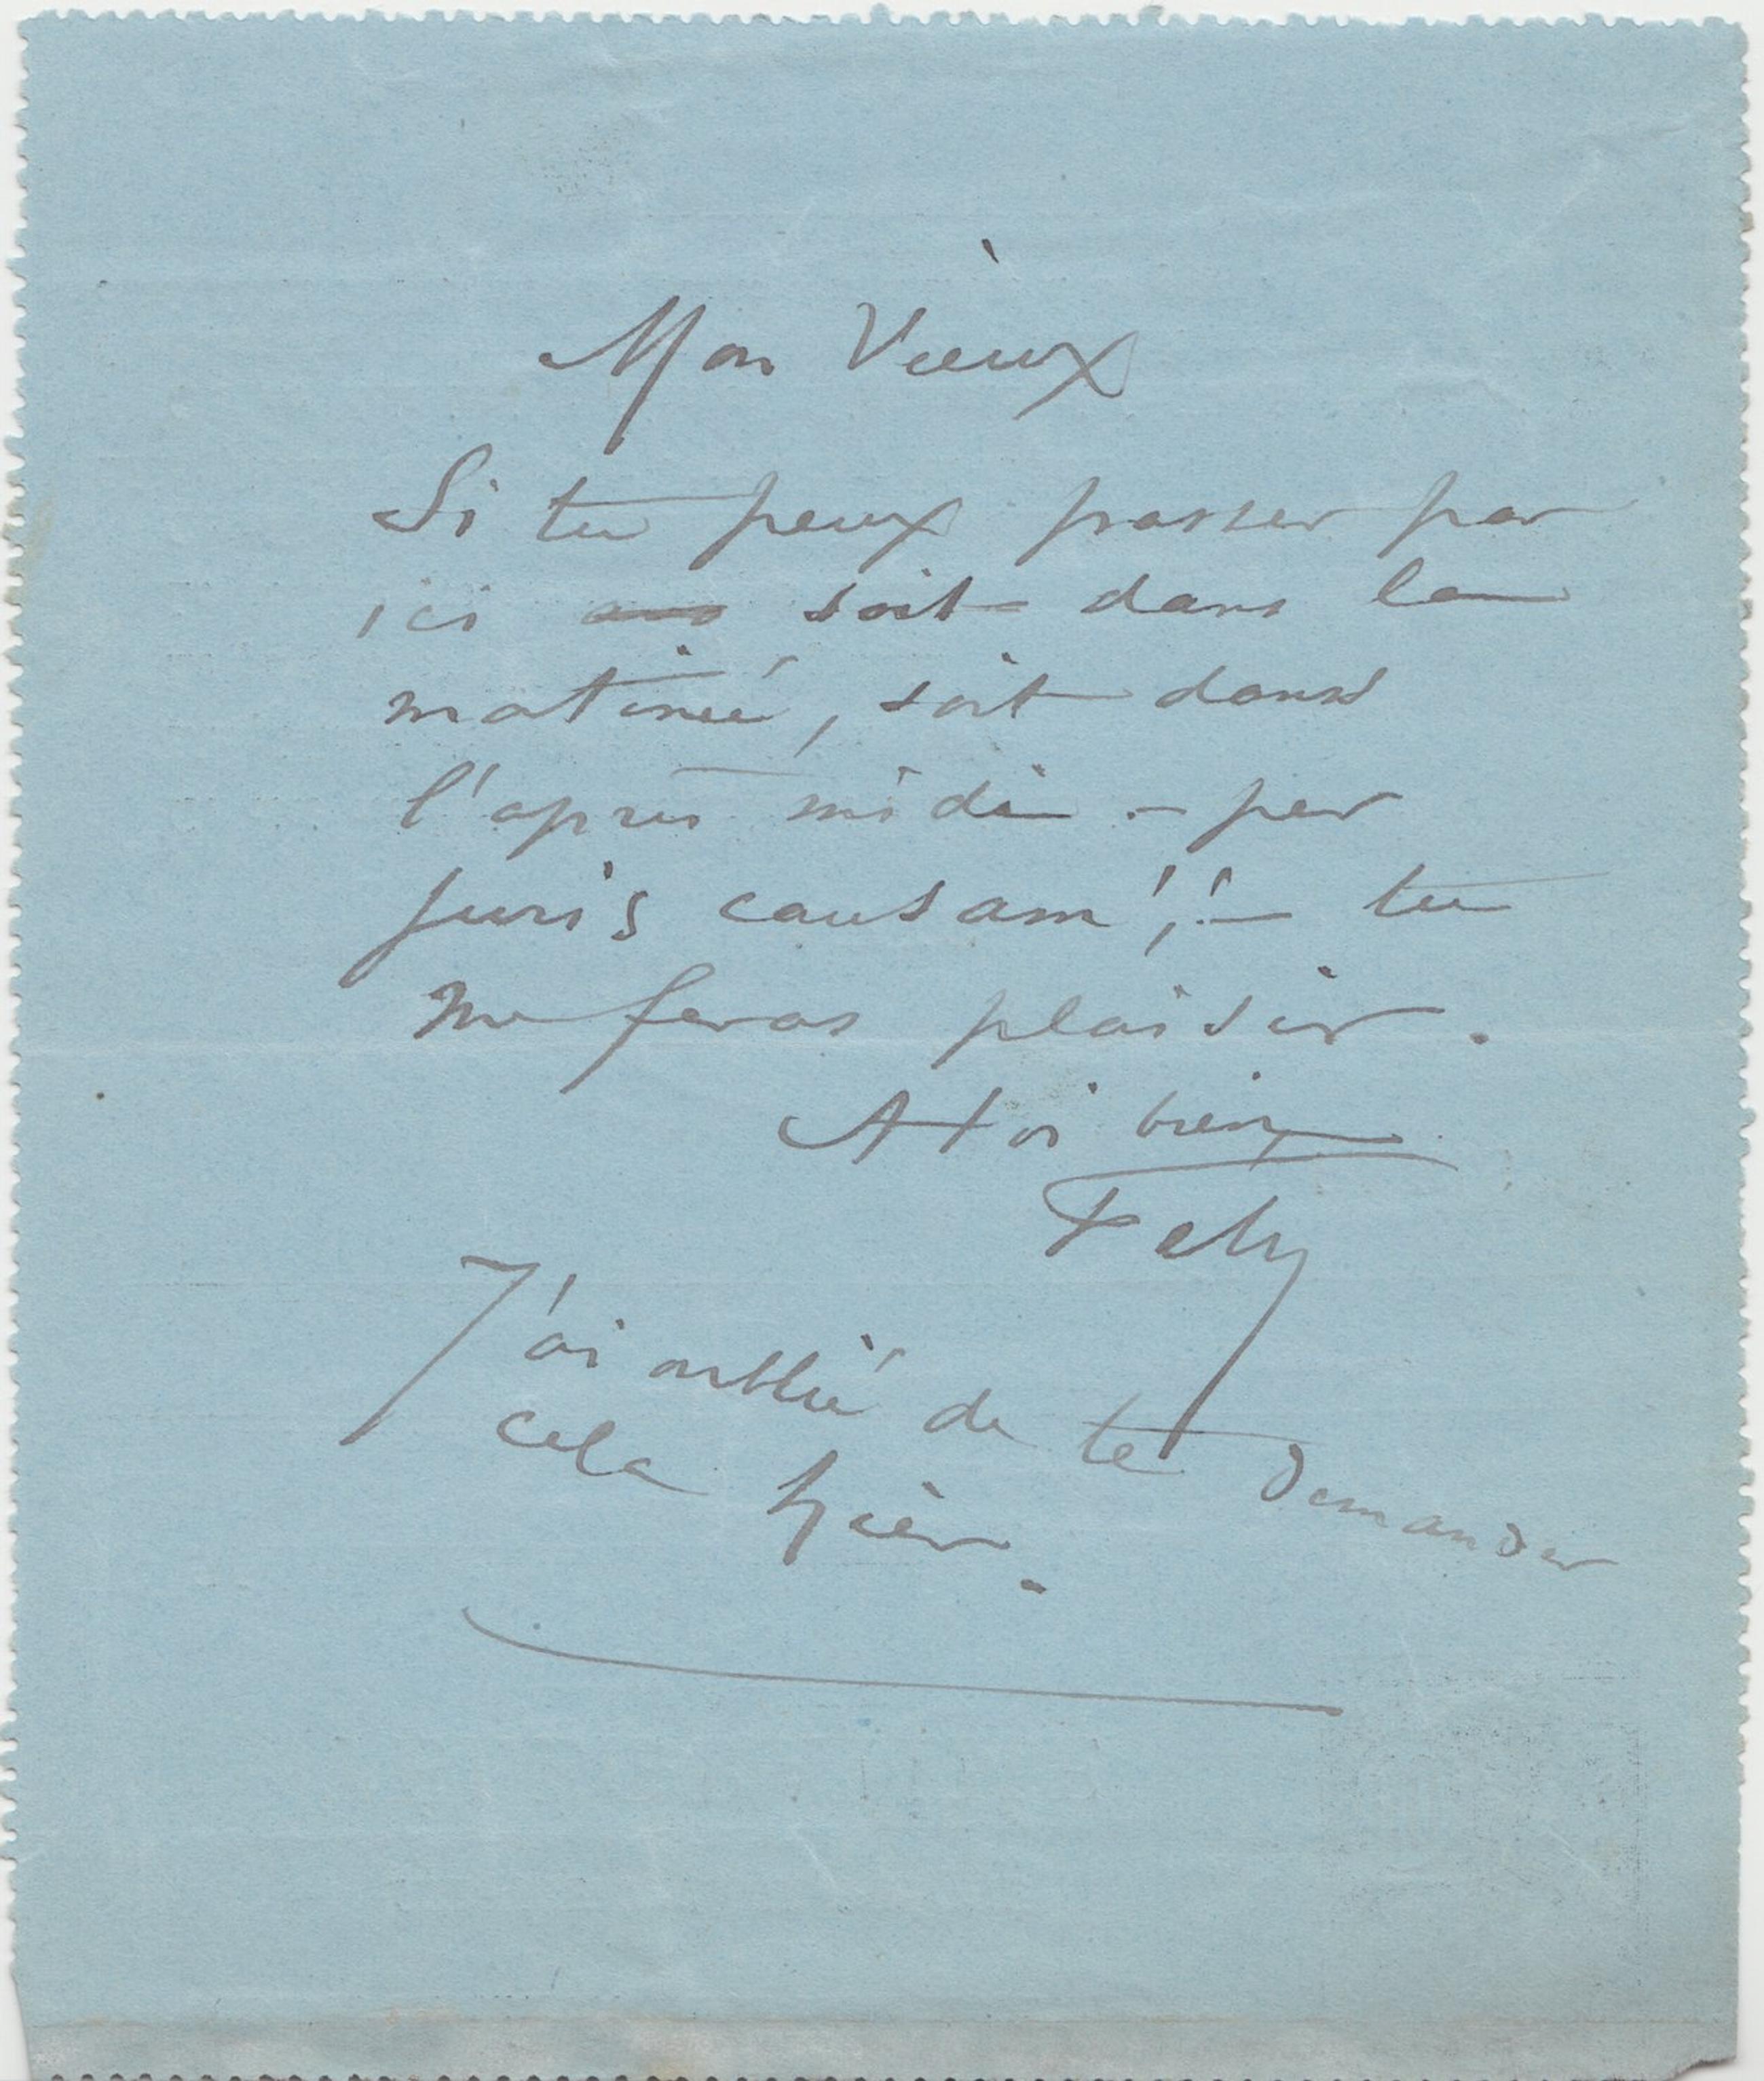 Mon Vieux
Si tu peux passer par
ici soit dans la
matinée, soit dans
l'après midi - per
juris causam !,! - tu
me feras plaisir.
A toi bien
Fely
J'ai oublié de te demander
cela hier.